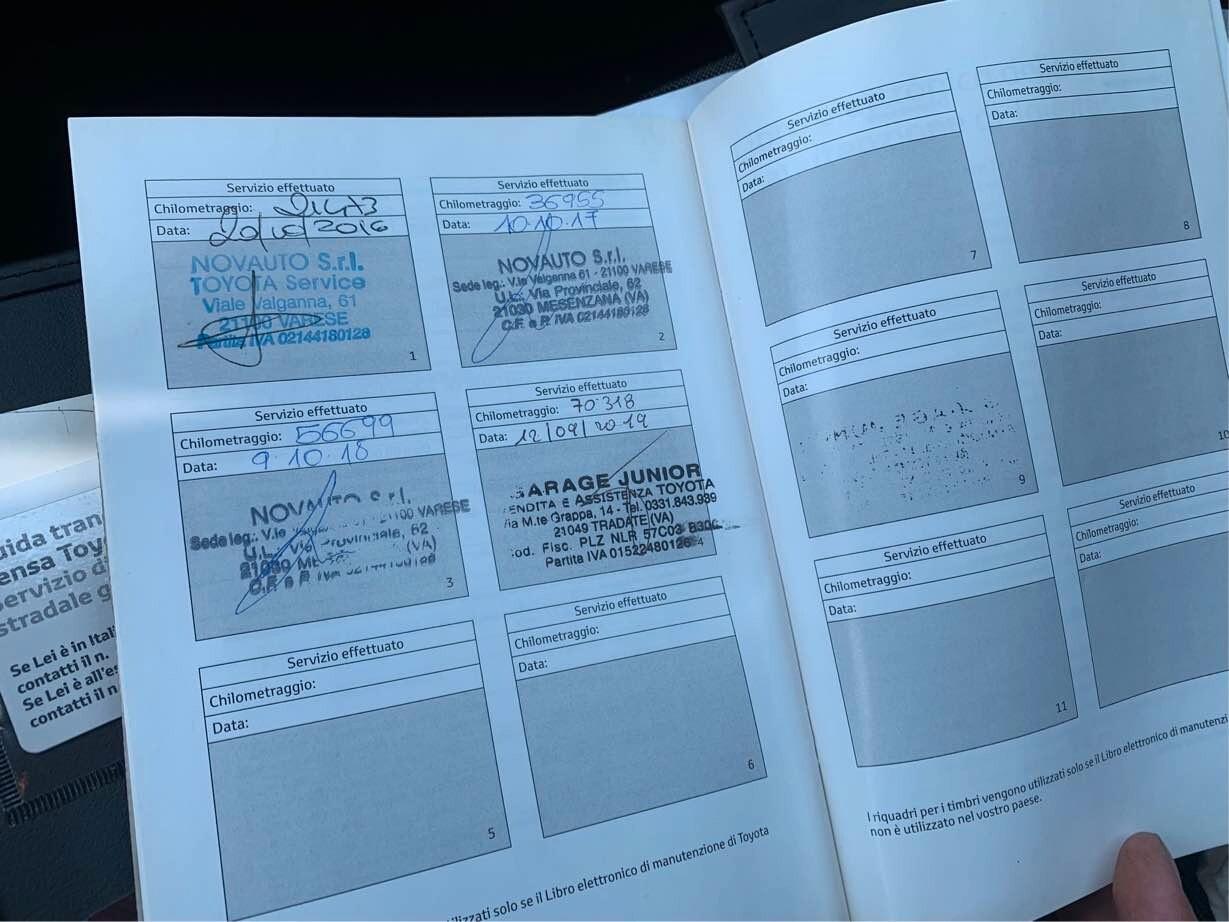 Servizio effettuato
Chilometraggio:
Data: 20/10/2016
NOVAUTO S.r.l.
TOYOTA Service
Viale Valganna, 61
21100 VARESE
Partita IVA 02144180128
1
Servizio effettuato
Chilometraggio: 36955
Data: 10.10.17
NOVAUTO S.r.l.
Sede leg.: V.le Valganna 61 - 21100 VARESE
U.L.: Via Provinciale, 62
21030 MESENZANA (VA)
C.F. e P. IVA 02144180128
2
Servizio effettuato
Chilometraggio: 56699
Data: 9.10.18
NOVAUTO S.r.l.
Sede leg.: V.le 21100 VARESE
U.L.: Via Provinciale, 62
21030 (VA)
C.F. e P. IVA 02144180128
3
Servizio effettuato
Chilometraggio: 70.318
Data: 12/09/2019
GARAGE JUNIOR
VENDITA E ASSISTENZA TOYOTA
Via M.te Grappa, 14 - Tel. 0331.843.989
21049 TRADATE (VA)
Cod. Fisc. PLZ NLR 57C03
Partita IVA 01522480126
4
Servizio effettuato
Chilometraggio:
Data:
5
Servizio effettuato
Chilometraggio:
Data:
6
utilizzati solo se il Libro elettronico di manutenzione di Toyota
Servizio effettuato
Chilometraggio:
Data:
7
Servizio effettuato
Chilometraggio:
Data:
8
Servizio effettuato
Chilometraggio:
Data:
9
Servizio effettuato
Chilometraggio:
Data:
10
Servizio effettuato
Chilometraggio:
Data:
11
Servizio effettuato
Chilometraggio:
Data:
I riquadri per i timbri vengono utilizzati solo se il Libro elettronico di manutenzi
non è utilizzato nel vostro paese.
uida tran
ensa Toy
ervizio di
stradale g
Se Lei è in Itali
contatti il n.
Se Lei è all'es
contatti il n